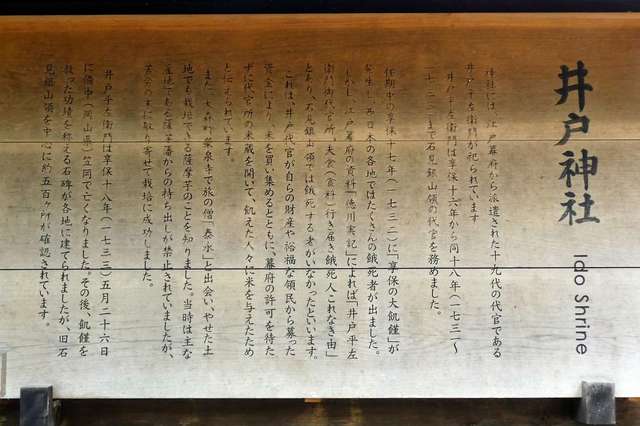 井戸神社
Ido Shrine
神社には、江戸幕府から派遣された十九代の代官である
井戸平左衛門が祀られています。
井戸平左衛門は享保十六年から同十八年(一七三一〜
一七三三)まで石見銀山領の代官を務めました。
任期中の享保十七年(一七三二)に「享保の大飢饉」が
発生し、西日本の各地でたくさんの餓死者が出ました。
しかし、江戸幕府の資料「徳川実記」によれば「井戸平左
衛門御代官所、夫食(食料)行き届き餓死人これなき由」
とあり、石見銀山領では餓死する者がいなかったといいます。
これは、井戸代官が自らの財産や裕福な領民から募った
資金により、米を買い集めるとともに、幕府の許可を待た
ずに代官所の米蔵を開いて、飢えた人々に米を与えたため
と伝えられています。
また、大森町の栄泉寺で旅の僧「泰永」と出会い、やせた土
地でも栽培できる薩摩芋のことを知りました。当時は主な
産地である薩摩藩からの持ち出しが禁止されていましたが、
苦労の末に取り寄せて栽培に成功しました。
井戸平左衛門は享保十八年(一七三三)五月二十六日
に備中(岡山県)笠岡で亡くなりました。その後、飢饉を
救った功績を称える石碑が各地に建てられましたが、旧石
見銀山領を中心に約五百ヶ所が確認されています。